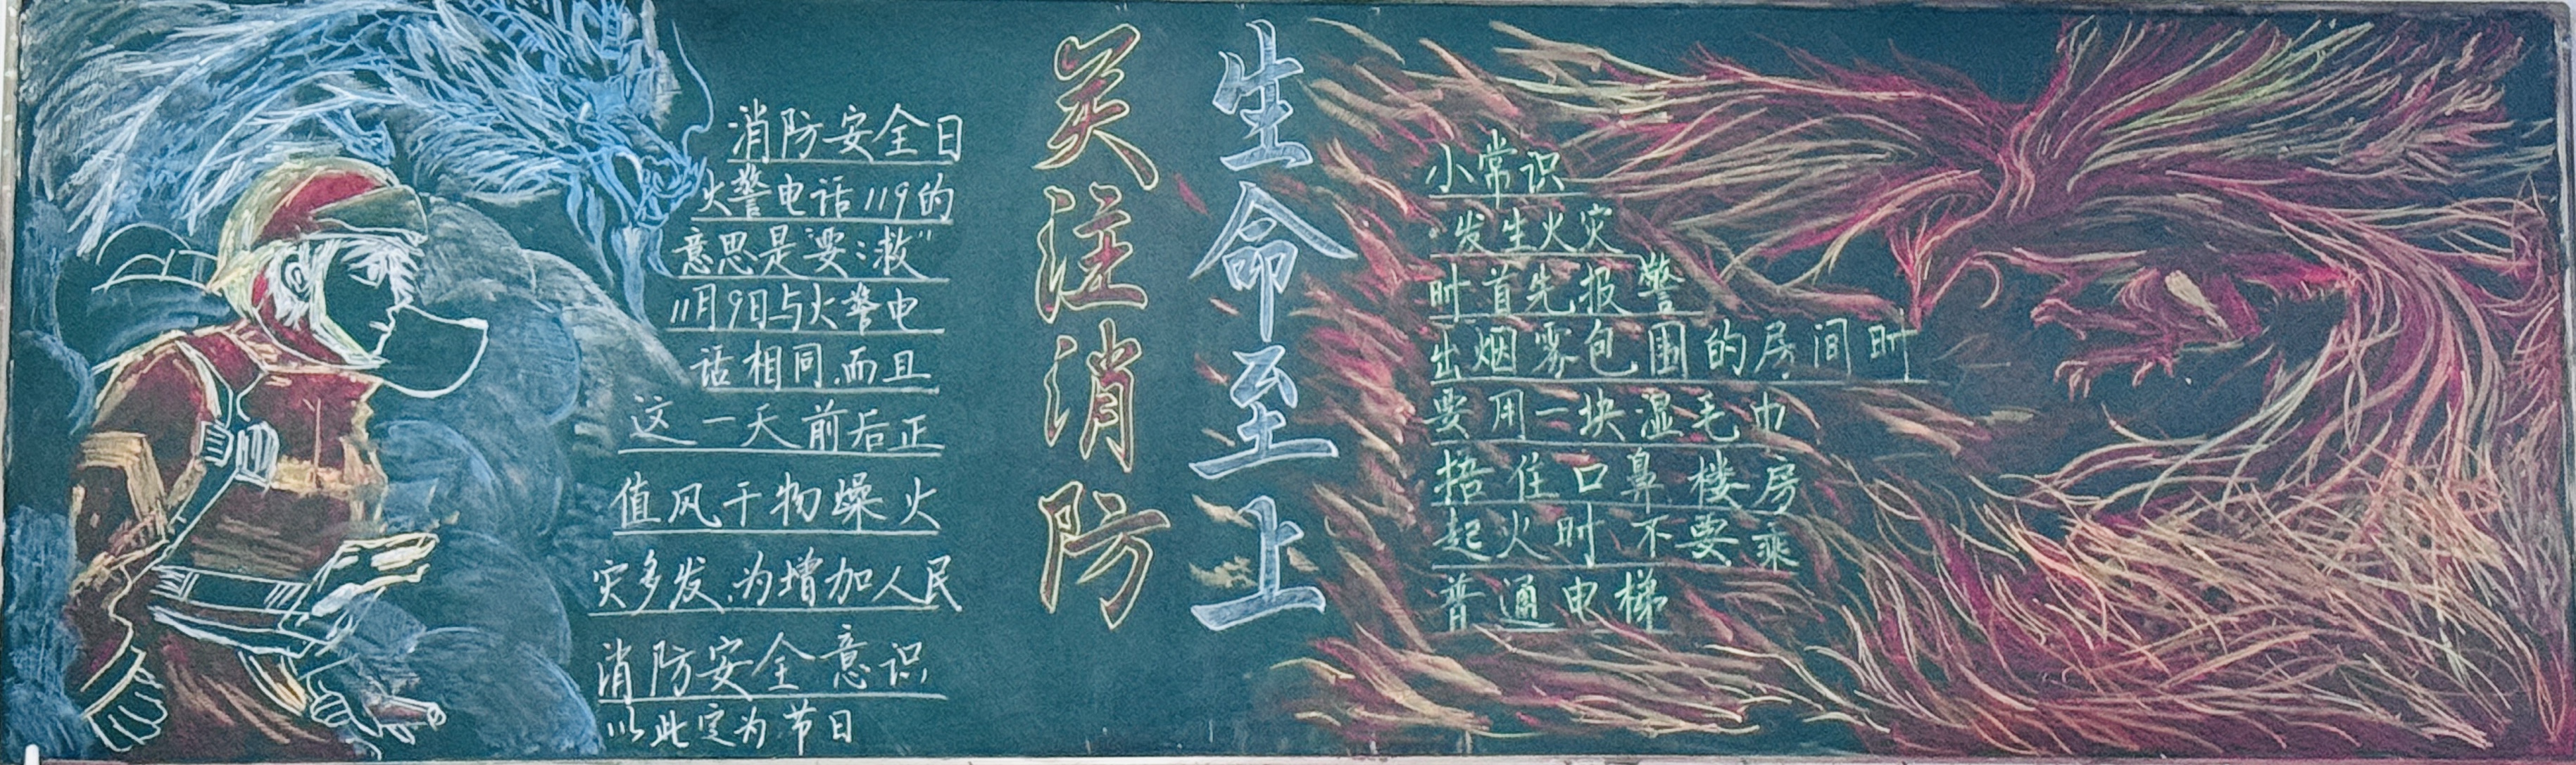 消防安全日
火警电话119的
意思是"要:救"
11月9日与火警电
话相同.而且
这一天前后正
值风干物燥火
灾多发.为增加人民
消防安全意识
以此定为节日
关注消防
生命至上
小常识
"发生火灾
时首先报警
出烟雾包围的房间时
要用一块湿毛巾
捂住口鼻楼房
起火时不要乘
普通电梯